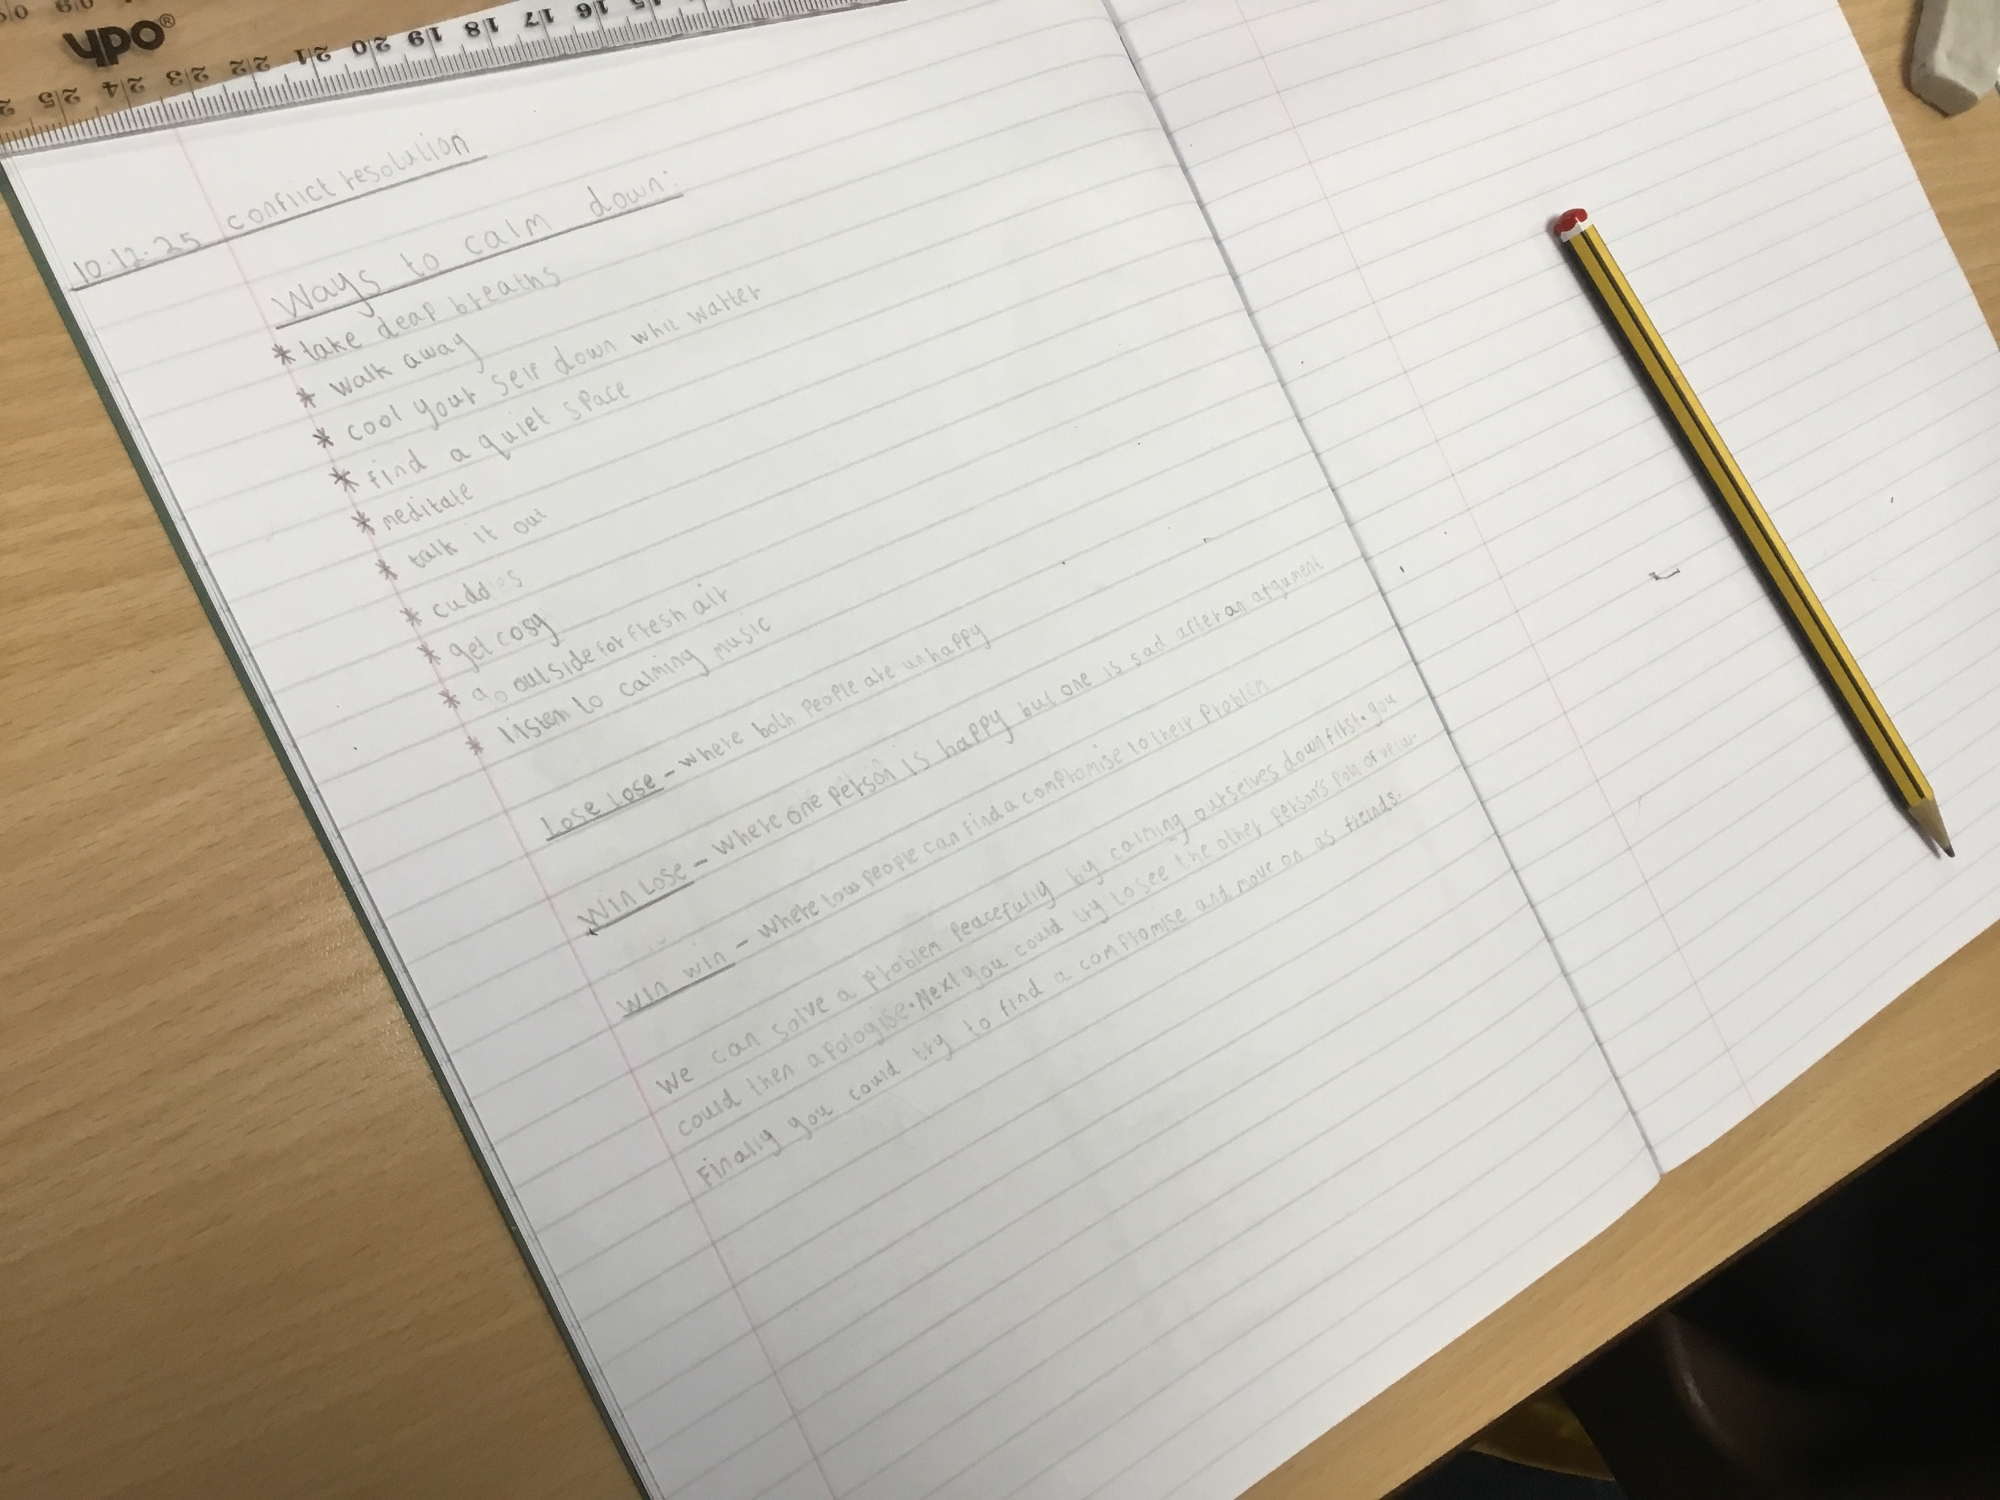 ypo®
25 24 23 22 21 20 19 18 17 16 15
10.12.25 conflict resolution
Ways to calm down:
* take deap breaths
* walk away
* cool your self down whit warter
* find a quiet space
* meditate
* talk it out
* cuddles
* get cosy
* go outside for fresh air
* listen to calming music
Lose Lose - where both people are unhappy
Win Lose - Where one person is happy but one is sad after an argument
win win - where people can find a compromise to their problem
We can solve a problem peacefully by calming ourselves down first. you
could then apologise. Next you could try to see the other person's of
Finally you could try to find a compromise and move on as